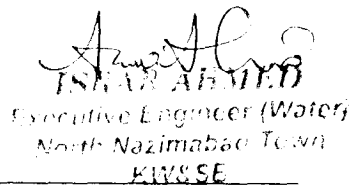 AHMED
Executive Engineer (Water)
North Nazimabad Town
KW&SE